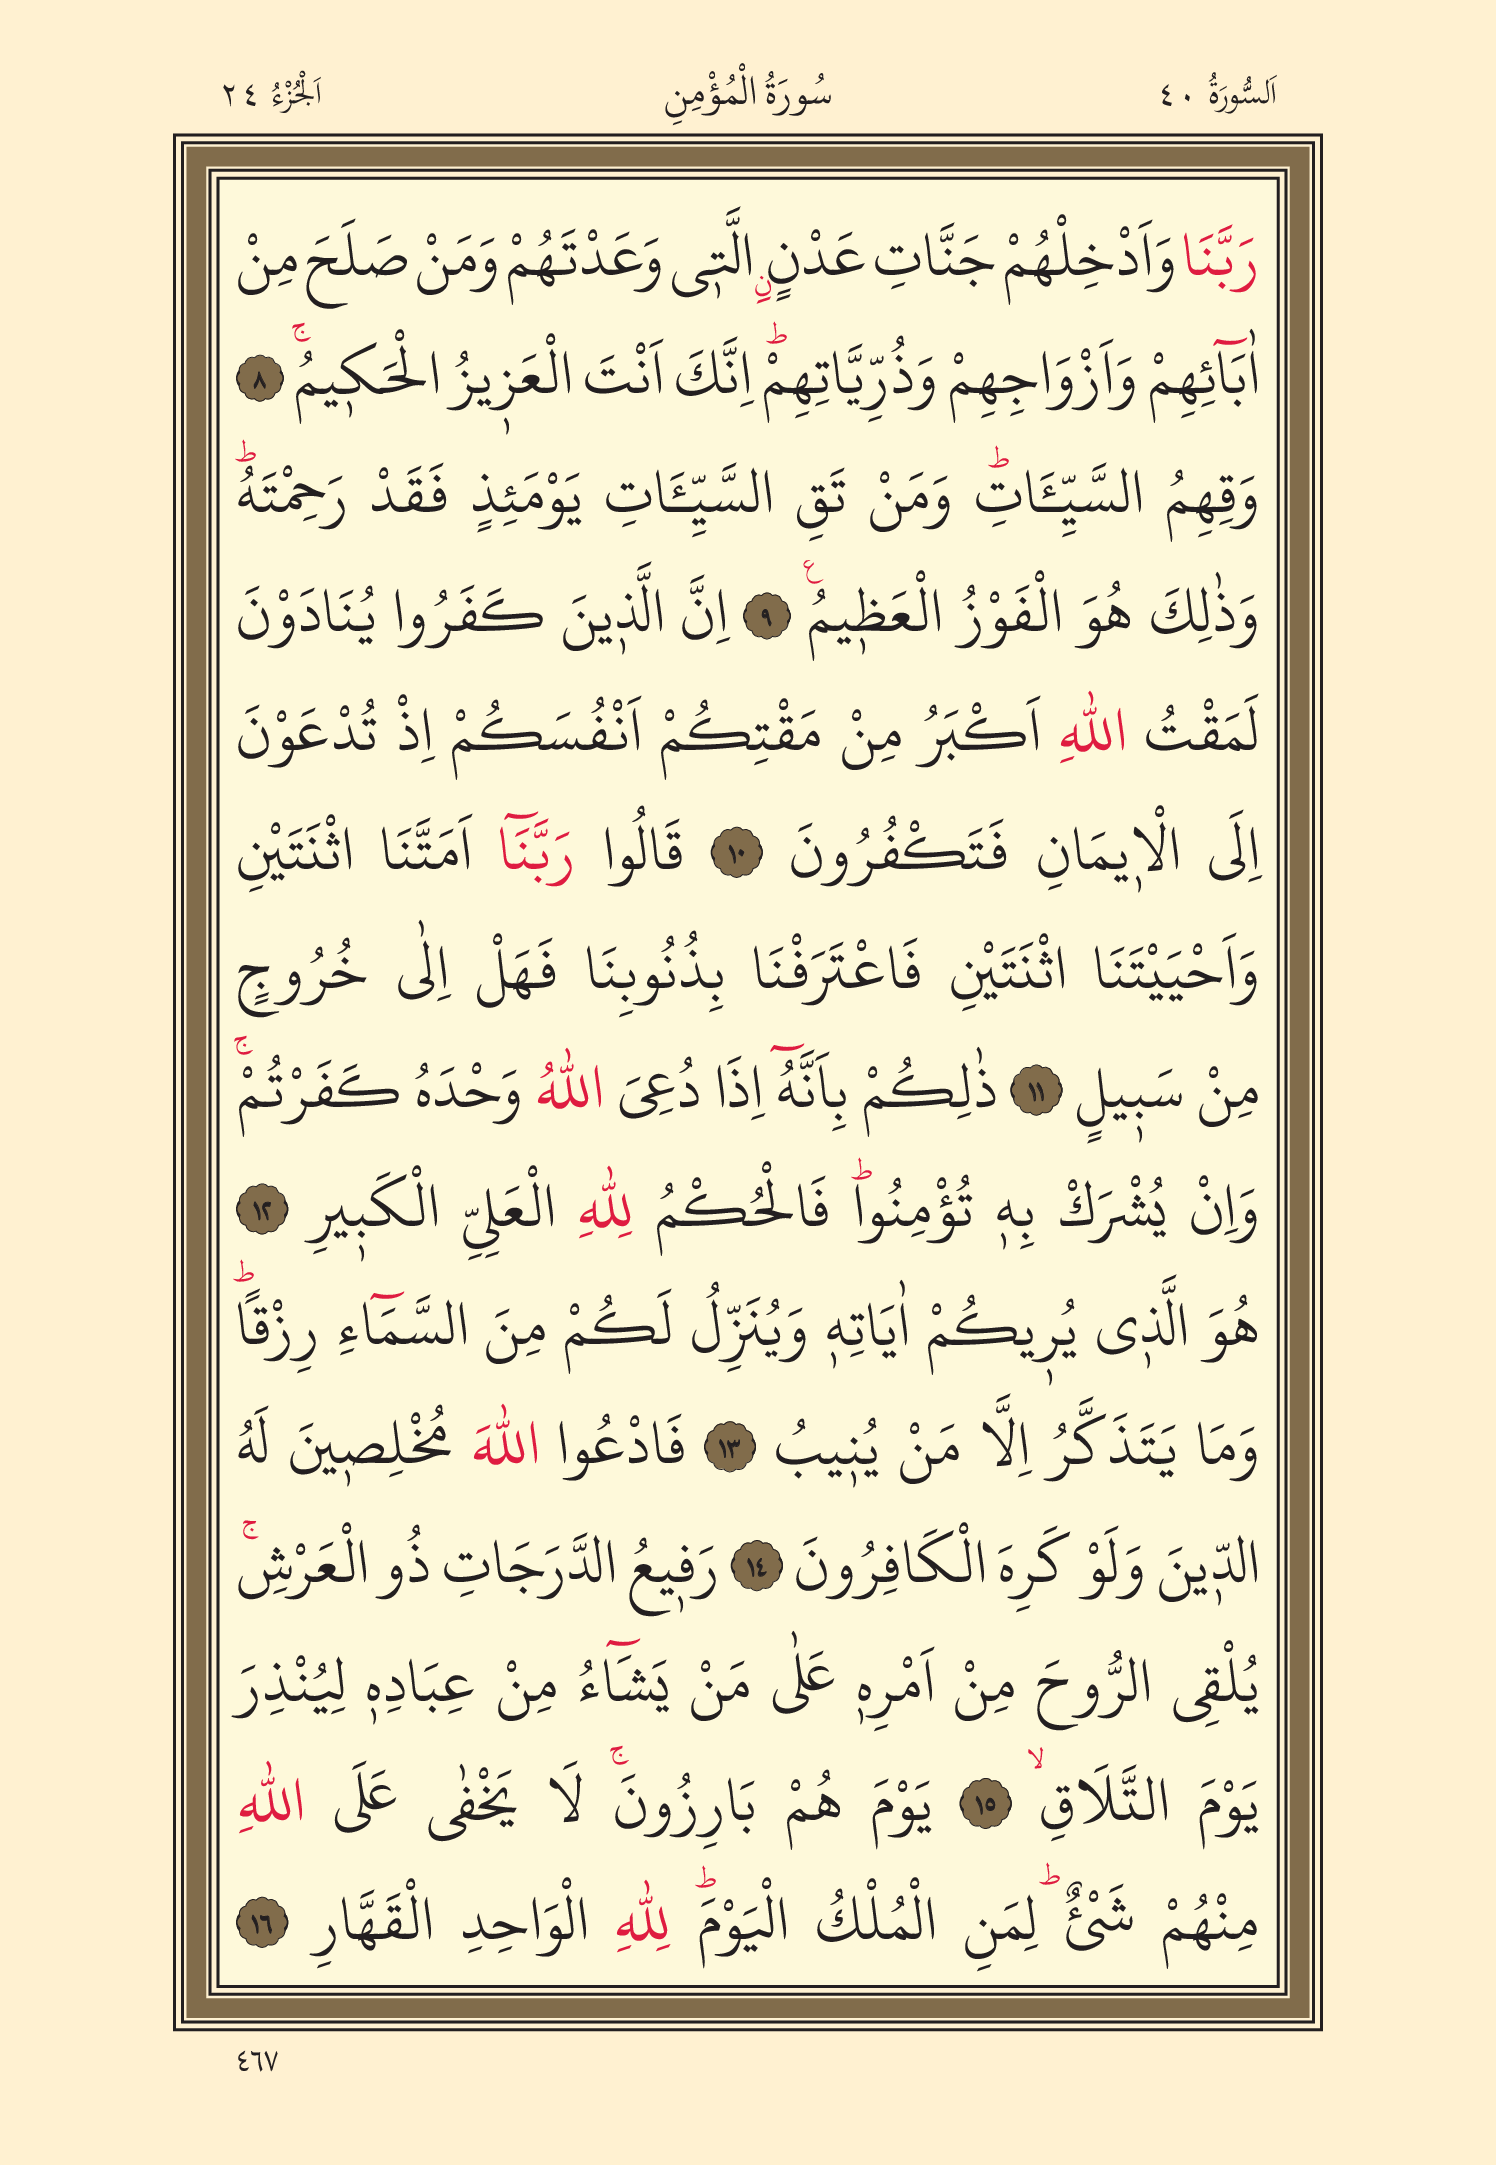 اَلسُّورَةُ ٤٠ سُورَةُ الْمُؤْمِنِ اَلْجُزْءُ ٢٤
رَبَّنَا وَاَدْخِلْهُمْ جَنَّاتِ عَدْنٍۨ الَّت۪ى وَعَدْتَهُمْ وَمَنْ صَلَحَ مِنْ
اٰبَٓائِهِمْ وَاَزْوَاجِهِمْ وَذُرِّيَّاتِهِمْۜ اِنَّكَ اَنْتَ الْعَز۪يزُ الْحَك۪يمُۚ ﴿٨﴾
وَقِهِمُ السَّيِّـَٔاتِۜ وَمَنْ تَقِ السَّيِّـَٔاتِ يَوْمَئِذٍ فَقَدْ رَحِمْتَهُۜ
وَذٰلِكَ هُوَ الْفَوْزُ الْعَظ۪يمُ۟ ﴿٩﴾ اِنَّ الَّذ۪ينَ كَفَرُوا يُنَادَوْنَ
لَمَقْتُ اللّٰهِ اَكْبَرُ مِنْ مَقْتِكُمْ اَنْفُسَكُمْ اِذْ تُدْعَوْنَ
اِلَى الْا۪يمَانِ فَتَكْفُرُونَ ﴿١٠﴾ قَالُوا رَبَّنَٓا اَمَتَّنَا اثْنَتَيْنِ
وَاَحْيَيْتَنَا اثْنَتَيْنِ فَاعْتَرَفْنَا بِذُنُوبِنَا فَهَلْ اِلٰى خُرُوجٍ
مِنْ سَب۪يلٍ ﴿١١﴾ ذٰلِكُمْ بِاَنَّهُٓ اِذَا دُعِىَ اللّٰهُ وَحْدَهُ كَفَرْتُمْۚ
وَاِنْ يُشْرَكْ بِه۪ تُؤْمِنُواۜ فَالْحُكْمُ لِلّٰهِ الْعَلِىِّ الْكَب۪يرِ ﴿١٢﴾
هُوَ الَّذ۪ى يُر۪يكُمْ اٰيَاتِه۪ وَيُنَزِّلُ لَكُمْ مِنَ السَّمَٓاءِ رِزْقًاۜ
وَمَا يَتَذَكَّرُ اِلَّا مَنْ يُن۪يبُ ﴿١٣﴾ فَادْعُوا اللّٰهَ مُخْلِص۪ينَ لَهُ
الدّ۪ينَ وَلَوْ كَرِهَ الْكَافِرُونَ ﴿١٤﴾ رَف۪يعُ الدَّرَجَاتِ ذُو الْعَرْشِۚ
يُلْقِى الرُّوحَ مِنْ اَمْرِه۪ عَلٰى مَنْ يَشَٓاءُ مِنْ عِبَادِه۪ لِيُنْذِرَ
يَوْمَ التَّلَاقِۙ ﴿١٥﴾ يَوْمَ هُمْ بَارِزُونَۚ لَا يَخْفٰى عَلَى اللّٰهِ
مِنْهُمْ شَىْءٌۜ لِمَنِ الْمُلْكُ الْيَوْمَۜ لِلّٰهِ الْوَاحِدِ الْقَهَّارِ ﴿١٦﴾
٤٦٧